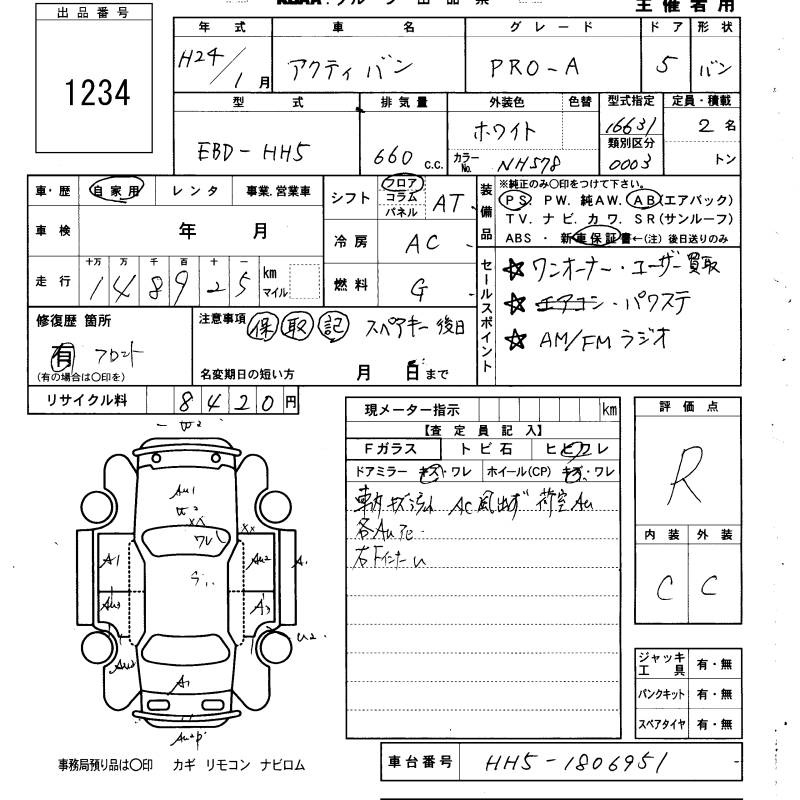 出品番号
1234
主催者用
年式 車名 グレード ドア 形状
H24/1月 アクティ バン PRO-A 5 バン
型式 排気量 外装色 色替 型式指定 定員・積載
EBD-HH5 660 c.c. ホワイト 16631 2名
カラーNo. NH578 類別区分 0003 トン
車・歴 自家用 レンタ 事業.営業車
車検 年 月
走行 十万 万 千 百 十 一 km マイル
148925
シフト フロア コラム パネル AT
冷房 AC
燃料 G
装備品
※純正のみ〇印をつけて下さい。
PS. PW. 純AW. AB(エアバック)
TV. ナビ. カワ. SR(サンルーフ)
ABS ・ 新車保証書←(注) 後日送りのみ
セールスポイント
☆ ワンオーナー・ユーザー買取
☆ エアコン・パワステ
☆ AM/FM ラジオ
修復歴 箇所
有 フロント
(有の場合は〇印を)
注意事項 保 取 記 スペアキー後日
名変期日の短い方 月 日まで
リサイクル料 8420円
現メーター指示 km
【査定員記入】
Fガラス トビ石 ヒビワレ
ドアミラー キズ・ワレ ホイール(CP) キズ・ワレ
AC風出ず 荷室Au
評価点
R
内装 外装
C C
Au1
ワレ
A1 Au2 A1
Au3 A3
U2
Au2
A1
ジャッキ工具 有・無
パンクキット 有・無
スペアタイヤ 有・無
事務局預り品は〇印 カギ リモコン ナビロム
車台番号 HH5-1806951